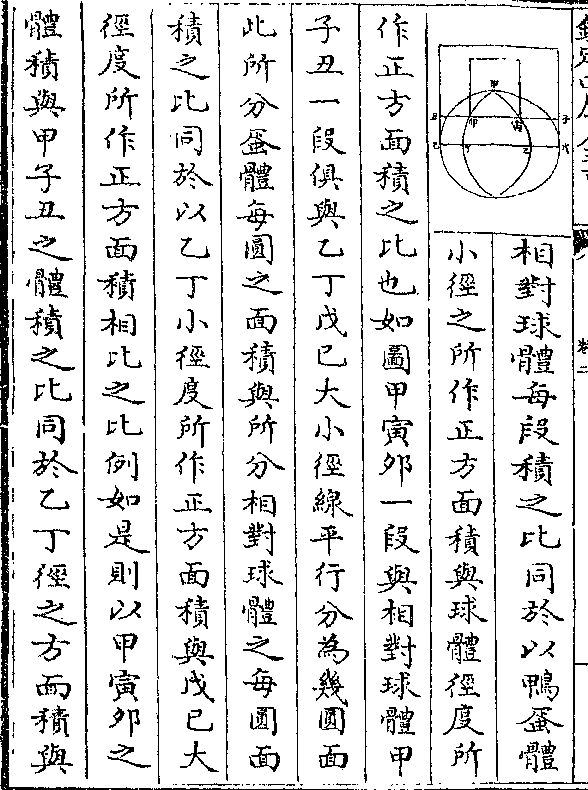 相對球體每段積之比同於以鴨蛋體
小徑之所作正方面積與球體徑度所
作正方面積之比也如圖甲寅夘一段與相對球體甲
子丑一段俱與乙丁戊已大小徑線平行分為幾圓面
此所分蛋體每圓之面積與所分相對球體之每圓面
積之比同於以乙丁小徑度所作正方面積與戊已大
徑度所作正方面積相比之比例如是則以甲寅夘之
體積與甲子丑之體積之比同於乙丁徑之方面積與